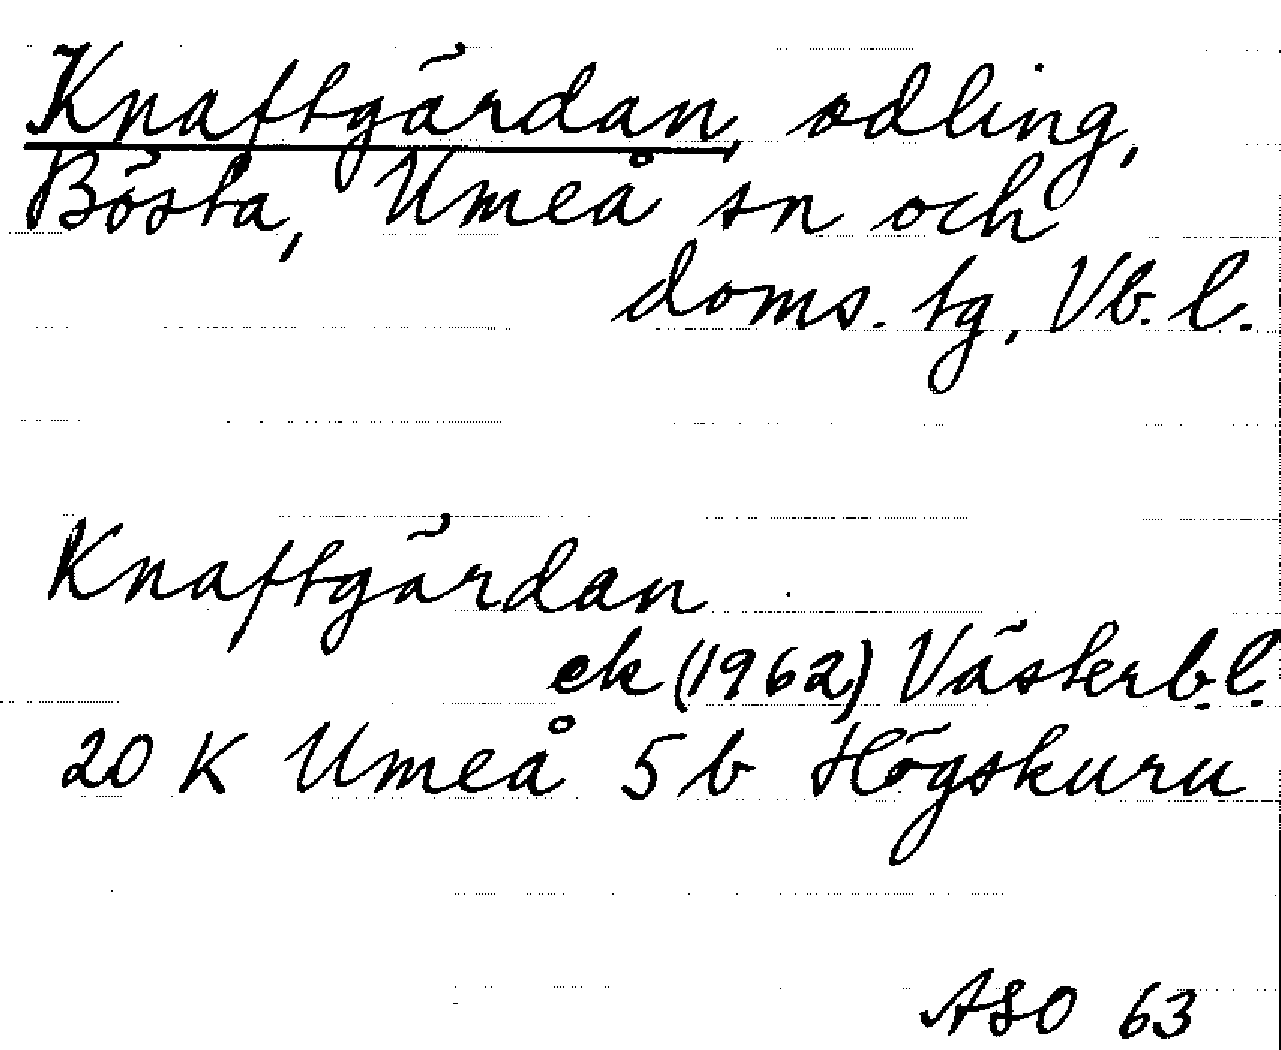 Knaftgärdan, odling,
Bösta, Umeå sn och
doms. tg, Vb. l.
Knaftgärdan
ek (1962) Västerb. l.
20 K Umeå 5 b Högskuru
ASO 63